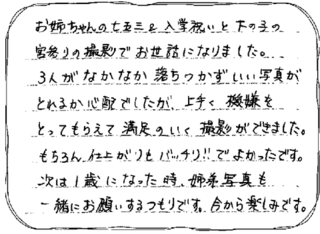 お姉ちゃんの七五三&入学祝いと下の子の
宮参りの撮影でお世話になりました。
3人がなかなか落ちつかずいい写真が
とれるか心配でしたが、上手く機嫌も
とってもらえて満足のいく撮影ができました。
もちろん、仕上がりもバッチリ!!でよかったです。
次は1歳になった時、姉弟写真も
一緒にお願いするつもりです。今から楽しみです。